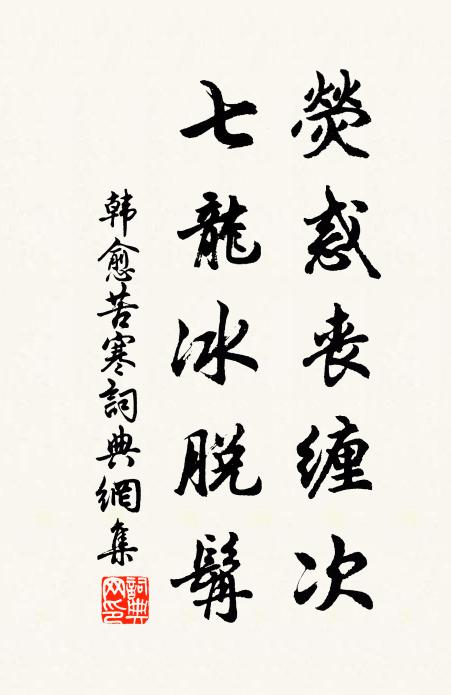 熒惑丧缠次
七龍冰脱髯
韩愈苦寒詞典網集
詞典网印